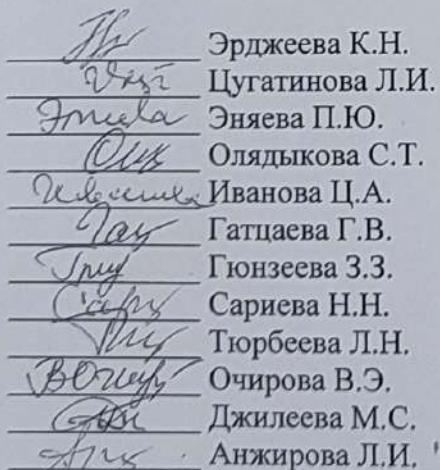 Эрджеева К.Н.
Цугатинова Л.И.
Эняева П.Ю.
Олядыкова С.Т.
Иванова Ц.А.
Гатцаева Г.В.
Гюнзеева З.З.
Сариева Н.Н.
Тюрбеева Л.Н.
Очирова В.Э.
Джилеева М.С.
Анжирова Л.И.